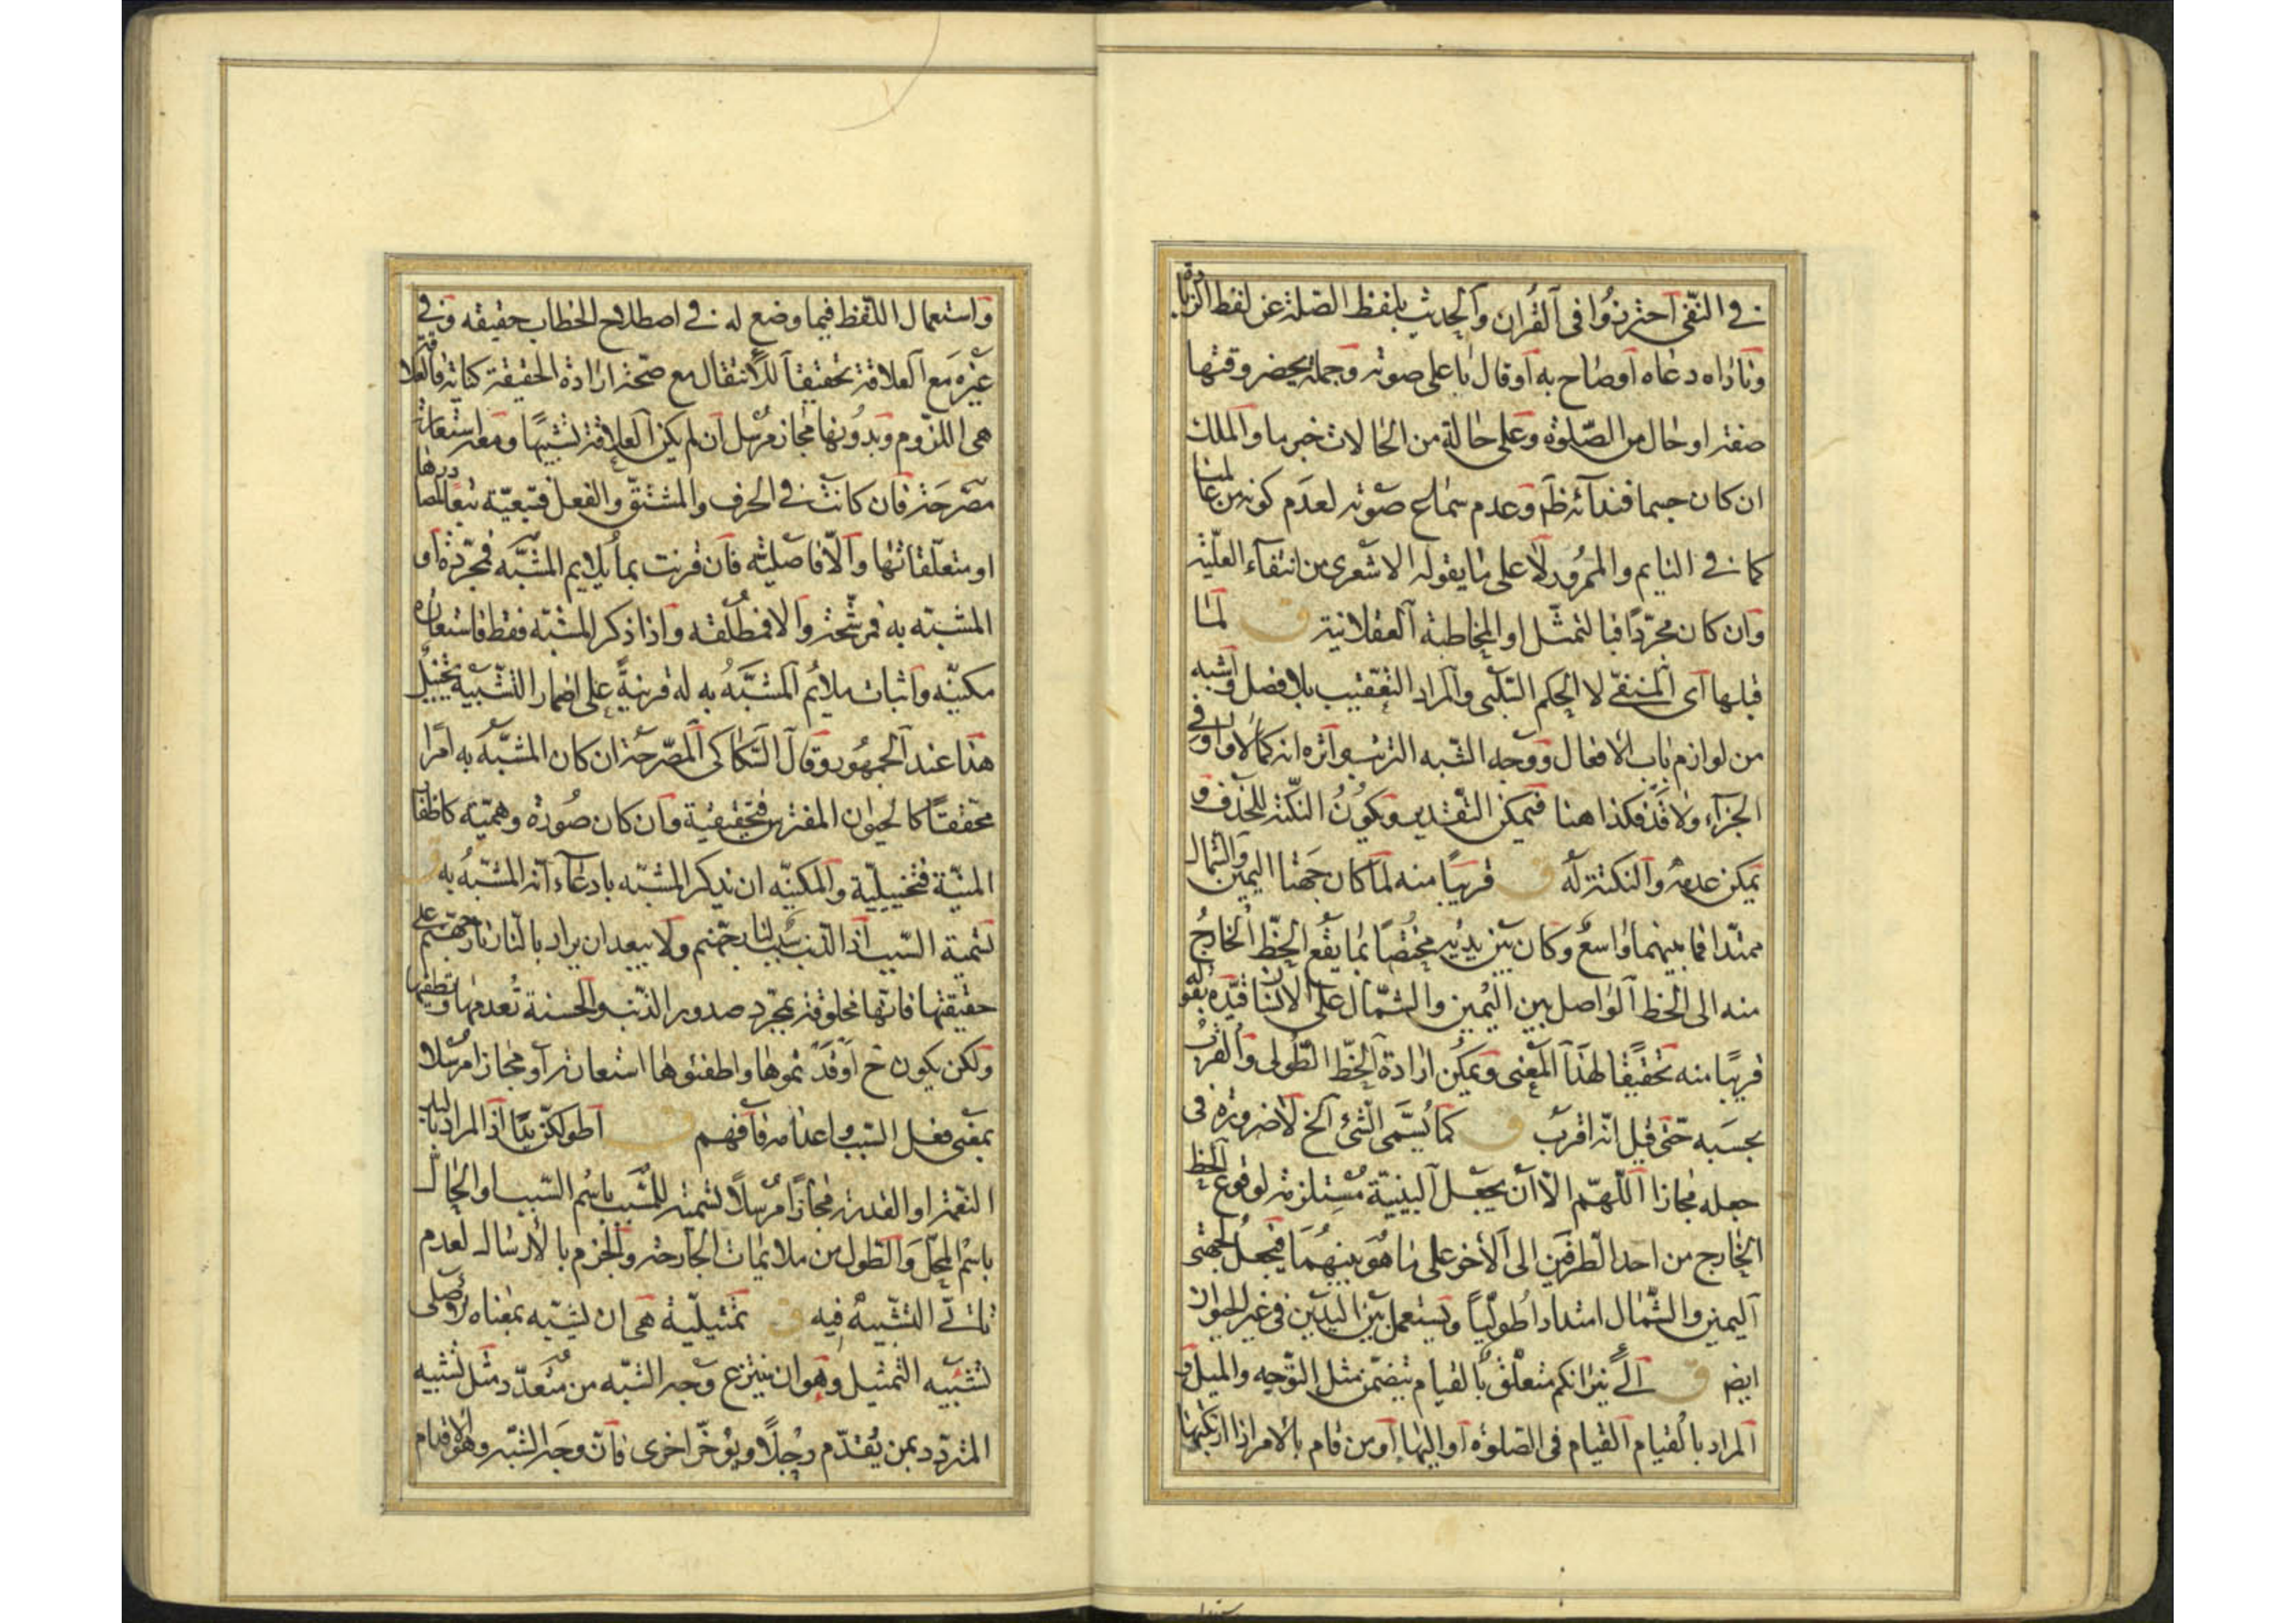 في النفي احترزوا في القرآن والحديث بلفظ الصلة عن لفظ الزيادة
وناداه دعاه او صاح به او قال باعلى صوته وجملة يحضر وقتها
صفة او حال من الصلوة وعلى حالة من الحالات خبر ما والملك
ان كان جسما فندائه ظ وعدم سماع صوته لعدم كونه من عالمنا
كما في النايم والممرور لا على ما يقوله الاشعرى من انتفاء العلية
وان كان مجردا فبالتمثل او المخاطبة العقلانية ق لما
قبلها اى المنفى لا الحكم السلبى والمراد التعقيب بلا فصل وشبه
من لوازم باب الافعال ووجه الشبه الترتب واثره انه كما لا واو في
الجزاء ولا قد فكذا هنا فيمكن التقدير ويكون النكتة للحذف و
يمكن عدمه والنكتة له ق قريبا منه لما كان جهتا اليمين والشمال
ممتدا فما بينهما واسع وكان بين يديه مختصا بما يقع الخط الخارج
منه الى الخط الواصل بين اليمين والشمال على الاسنا قيده بقوله
قريبا منه تحقيقا لهذا المعنى ويمكن ارادة الخط الطولى والقرب
بحسبه حتى قيل انه اقرب ق كما يسمى الشئ الخ لا ضرورة فى
جعله مجازا اللهم الا ان يجعل البينية مستلزمة لوقوع الخط
الخارج من احد الطرفين الى الاخر على ما هو بينهما فيجعل لجهتى
اليمين والشمال امتدادا طوليا ويستعمل بين اليدين فى غير الحيوان
ايض ق الى نيرانكم متعلق بالقيام بتضمن مثل التوجه والميل و
المراد بالقيام القيام فى الصلوة او اليها او من قام بالامر اذا ارتكبها
واستعمال اللفظ فيما وضع له في اصطلاح الخطاب حقيقه وفي
غيره مع العلاقة تحقيقا للانتقال مع صحة ارادة الحقيقة كناية فالعلاقة
هى اللزوم وبدونها مجاز مرسل ان لم يكن العلاقة تشبيها ومعه استعارة
مصرحة فان كانت في الحرف والمشتق والفعل فتبعية تبعا لمصادرها
او متعلقاتها والا فاصليته فان قرنت بما يلايم المشبه فمجردة او
المشبه به فمرشحة والا فمطلقه واذا ذكر المشبه فقط فاستعاره
مكنيه واثبات ملائم المشبه به له قرينة على اضمار التشبيه تخييل
هذا عند الجمهور وقال السكاكى المصرحة ان كان المشبه به امرا
محققا كالحيوان المفترس فتحقيقية وان كان صورة وهمية كاظفار
المنية فتخييلية والمكنيه ان يذكر المشبه بادعاء انه المشبه به ق
تسمية السبب اذ الذنب سبب لنار جهنم ولا يبعد ان يراد بالنار نار جهنم على
حقيقتها فانها مخلوقة بمجرد صدور الذنب والحسنة تعدمها وتطفيها
ولكن يكون ح اوقدتموها واطفئوها استعارة او مجازا مرسلا
بمعنى فعل السبب واعدامه فافهم ق اطولكن يدا اذ المراد باليد
النعمة او القدرة مجازا مرسلا تسمية للمسبب باسم السبب او الحال
باسم المحل والطول من ملايمات الجارحة والجزم بالارسال لعدم
تاتى التشبيه فيه ق تمثيلية هى ان يشبه بمعناه الاصلى
تشبيه التمثيل وهو ان ينتزع وجه الشبه من متعدد مثل تشبيه
المتردد بمن يقدم رجلا ويؤخر اخرى فان وجه الشبه وهو الاقدام